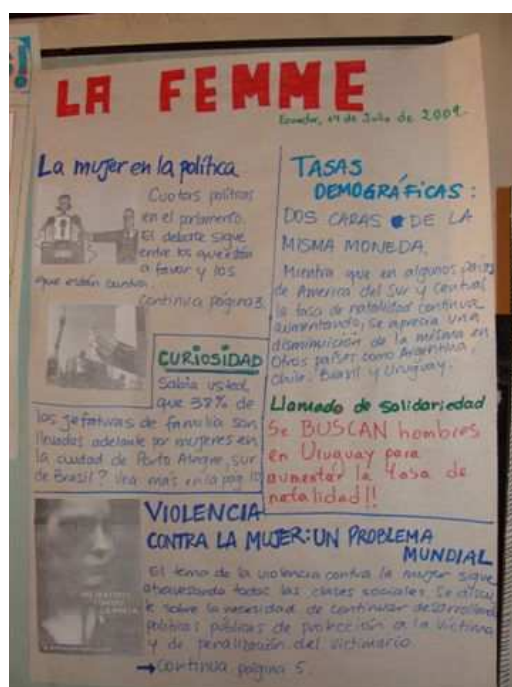 LA FEMME
Ecuador, 14 de Julio de 2009.
La mujer en la política
Cuotas políticas
en el parlamento.
El debate sigue
entre los que están
a favor y los
que están contra.
continúa página 3.
CURIOSIDAD
Sabía usted,
que 38% de
las jefaturas de familia son
llevadas adelante por mujeres en
la ciudad de Porto Alegre, sur
de Brasil? Vea más en la pag. 
TASAS
DEMOGRÁFICAS:
DOS CARAS DE LA
MISMA MONEDA.
Mientra que en algunos países
de America del Sur y Central
la tasa de natalidad continua
aumentando, se aprecia una
disminuición de la misma en
Otros países como Argentina,
Chile, Brasil y Uruguay.
Llamado de solidariedad
Se BUSCAN hombres
en Uruguay para
aumentar la tasa de
natalidad!!
VIOLENCIA
CONTRA LA MUJER: UN PROBLEMA
MUNDIAL
El tema de la violencia contra la mujer sigue
atravesando todas las clases sociales. Se discu
te sobre la necesidad de continuar desarrollando
políticas públicas de protección a la víctima
y de penalización del victimario.
→ continua página 5.